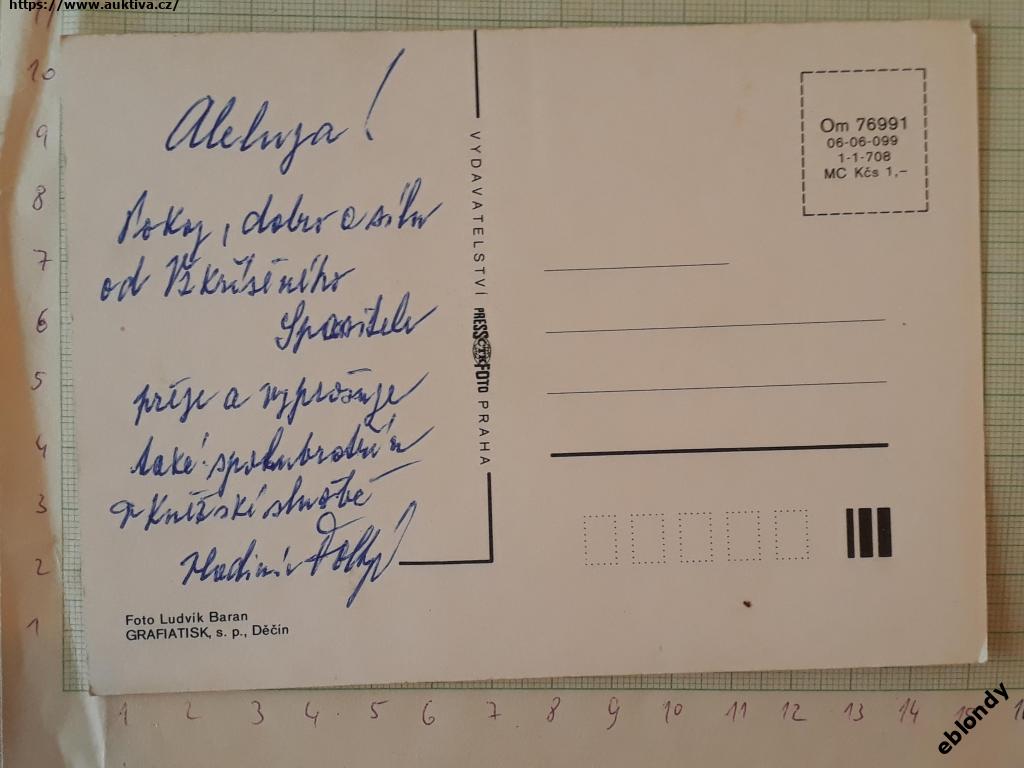 https://www.auktiva.cz/
Aleluja!
Pokoj, dobro a sílu
od Vzkříšeného
Spasitele
přeje a vyprošuje
také spolubratřím
v kněžské službě
Vladimír
Foto Ludvík Baran
GRAFIATISK, s. p., Děčín
VYDAVATELSTVÍ PRESSFOTO PRAHA
ČTK
Om 76991
06-06-099
1-1-708
MC Kčs 1,–
10
9
8
7
6
5
4
3
2
1
1 2 3 4 5 6 7 8 9 10 11 12 13 14 15
eblondy